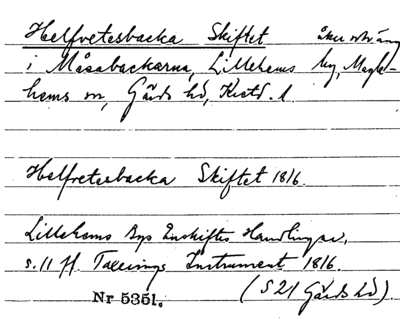 Helfvetesbacka Skiftet åker o äng
i Måsabackarna, Lillehems by, Magle-
hems sn, Gärds hd, Kristd. l.
Helfvetesbacka Skiftet 1816.
Lillehems Bys Enskiftes Handlingar,
s. 11 ff. Taxerings Instrument 1816.
Nr 5351. (S 21 Gärds hd)